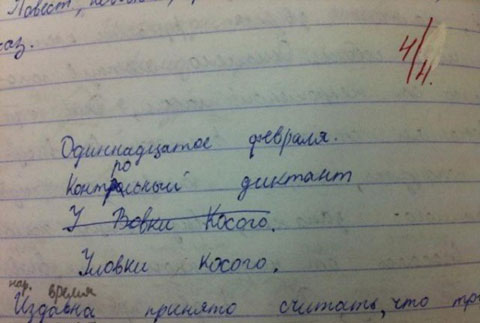 Повест,
каз.
4/4.
Одиннадцатое февраля.
ро
Контрольный диктант
У Вовки Косого.
Уловки косого.
нар. время
Издавна принято считать, что тр